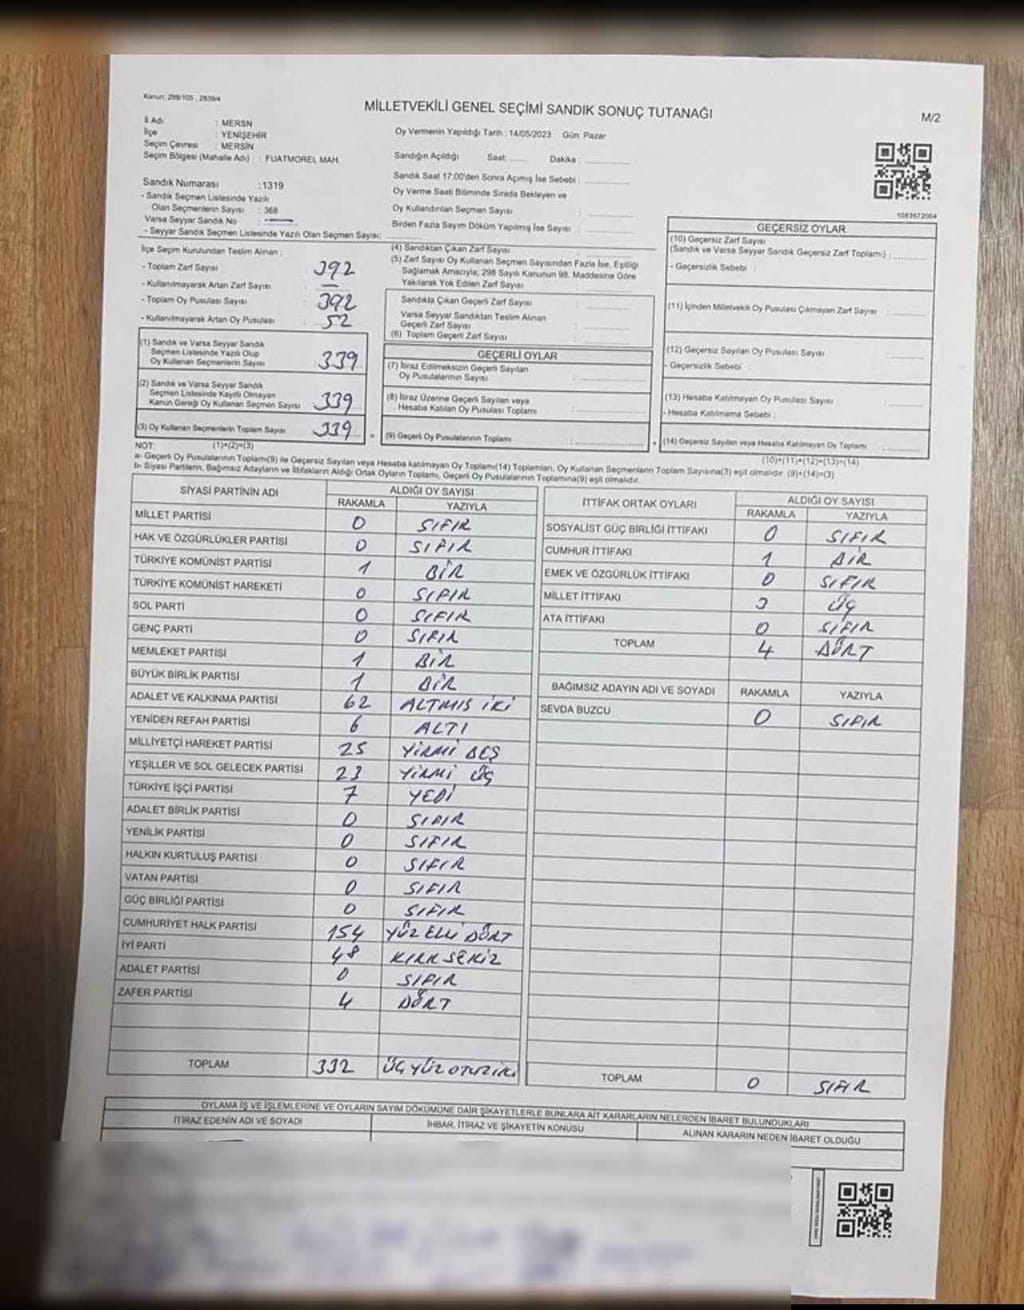 Kanun: 298/105 , 2839/4
MİLLETVEKİLİ GENEL SEÇİMİ SANDIK SONUÇ TUTANAĞI
M/2
İl Adı : MERSN
İlçe : YENİŞEHİR
Seçim Çevresi : MERSİN
Seçim Bölgesi (Mahalle Adı) : FUATMOREL MAH.
Oy Vermenin Yapıldığı Tarih : 14/05/2023 Gün: Pazar
Sandığın Açıldığı Saat: ...... Dakika : ..............
Sandık Saat 17:00'den Sonra Açılmış İse Sebebi : ..............
Oy Verme Saati Bitiminde Sırada Bekleyen ve
Oy Kullandırılan Seçmen Sayısı : ..............
Birden Fazla Sayım Döküm Yapılmış İse Sayısı : ..............
1083672064
Sandık Numarası :1319
- Sandık Seçmen Listesinde Yazılı
Olan Seçmenlerin Sayısı : 368
Varsa Seyyar Sandık No :
- Seyyar Sandık Seçmen Listesinde Yazılı Olan Seçmen Sayısı:
İlçe Seçim Kurulundan Teslim Alınan ;
- Toplam Zarf Sayısı : 392
- Kullanılmayarak Artan Zarf Sayısı : —
- Toplam Oy Pusulası Sayısı : 392
- Kullanılmayarak Artan Oy Pusulası : 52
(1) Sandık ve Varsa Seyyar Sandık
Seçmen Listesinde Yazılı Olup
Oy Kullanan Seçmenlerin Sayısı 339
(2) Sandık ve Varsa Seyyar Sandık
Seçmen Listesinde Kayıtlı Olmayan
Kanun Gereği Oy Kullanan Seçmen Sayısı 339
(3) Oy Kullanan Seçmenlerin Toplam Sayısı 339
(1)+(2)=(3)
(4) Sandıktan Çıkan Zarf Sayısı
(5) Zarf Sayısı Oy Kullanan Seçmen Sayısından Fazla İse, Eşitliği
Sağlamak Amacıyla; 298 Sayılı Kanunun 98. Maddesine Göre
Yakılarak Yok Edilen Zarf Sayısı
Sandıkta Çıkan Geçerli Zarf Sayısı
Varsa Seyyar Sandıktan Teslim Alınan
Geçerli Zarf Sayısı
(6) Toplam Geçerli Zarf Sayısı
GEÇERLİ OYLAR
(7) İtiraz Edilmeksizin Geçerli Sayılan
Oy Pusulalarının Sayısı
(8) İtiraz Üzerine Geçerli Sayılan veya
Hesaba Katılan Oy Pusulası Toplamı
(9) Geçerli Oy Pusulalarının Toplamı
GEÇERSİZ OYLAR
(10) Geçersiz Zarf Sayısı
(Sandık ve Varsa Seyyar Sandık Geçersiz Zarf Toplamı) : ........
- Geçersizlik Sebebi :
(11) İçinden Milletvekili Oy Pusulası Çıkmayan Zarf Sayısı :
(12) Geçersiz Sayılan Oy Pusulası Sayısı
- Geçersizlik Sebebi :
(13) Hesaba Katılmayan Oy Pusulası Sayısı
- Hesaba Katılmama Sebebi :
(14) Geçersiz Sayılan veya Hesaba Katılmayan Oy Toplamı
(10)+(11)+(12)+(13)=(14)
NOT:
a- Geçerli Oy Pusulalarının Toplamı(9) ile Geçersiz Sayılan veya Hesaba katılmayan Oy Toplamı(14) Toplamları, Oy Kullanan Seçmenlerin Toplam Sayısına(3) eşit olmalıdır. (9)+(14)=(3)
b- Siyasi Partilerin, Bağımsız Adayların ve İttifakların Aldığı Ortak Oyların Toplamı, Geçerli Oy Pusulalarının Toplamına(9) eşit olmalıdır.
SİYASİ PARTİNİN ADI ALDIĞI OY SAYISI
RAKAMLA YAZIYLA
MİLLET PARTİSİ 0 SIFIR
HAK VE ÖZGÜRLÜKLER PARTİSİ 0 SIFIR
TÜRKİYE KOMÜNİST PARTİSİ 1 BİR
TÜRKİYE KOMÜNİST HAREKETİ 0 SIFIR
SOL PARTİ 0 SIFIR
GENÇ PARTİ 0 SIFIR
MEMLEKET PARTİSİ 1 BİR
BÜYÜK BİRLİK PARTİSİ 1 BİR
ADALET VE KALKINMA PARTİSİ 62 ALTMIŞ İKİ
YENİDEN REFAH PARTİSİ 6 ALTI
MİLLİYETÇİ HAREKET PARTİSİ 25 YİRMİ BEŞ
YEŞİLLER VE SOL GELECEK PARTİSİ 23 YİRMİ ÜÇ
TÜRKİYE İŞÇİ PARTİSİ 7 YEDİ
ADALET BİRLİK PARTİSİ 0 SIFIR
YENİLİK PARTİSİ 0 SIFIR
HALKIN KURTULUŞ PARTİSİ 0 SIFIR
VATAN PARTİSİ 0 SIFIR
GÜÇ BİRLİĞİ PARTİSİ 0 SIFIR
CUMHURİYET HALK PARTİSİ 154 YÜZ ELLİ DÖRT
İYİ PARTİ 48 KIRK SEKİZ
ADALET PARTİSİ 0 SIFIR
ZAFER PARTİSİ 4 DÖRT
TOPLAM 332 ÜÇ YÜZ OTUZ İKİ
İTTİFAK ORTAK OYLARI ALDIĞI OY SAYISI
RAKAMLA YAZIYLA
SOSYALİST GÜÇ BİRLİĞİ İTTİFAKI 0 SIFIR
CUMHUR İTTİFAKI 1 BİR
EMEK VE ÖZGÜRLÜK İTTİFAKI 0 SIFIR
MİLLET İTTİFAKI 3 ÜÇ
ATA İTTİFAKI 0 SIFIR
TOPLAM 4 DÖRT
BAĞIMSIZ ADAYIN ADI VE SOYADI RAKAMLA YAZIYLA
SEVDA BUZCU 0 SIFIR
TOPLAM 0 SIFIR
OYLAMA İŞ VE İŞLEMLERİNE VE OYLARIN SAYIM DÖKÜMÜNE DAİR ŞİKAYETLERLE BUNLARA AİT KARARLARIN NELERDEN İBARET BULUNDUKLARI
İTİRAZ EDENİN ADI VE SOYADI İHBAR, İTİRAZ VE ŞİKAYETİN KONUSU ALINAN KARARIN NEDEN İBARET OLDUĞU